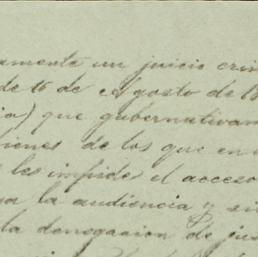 amente un juicio cri
de 16 de Agosto de 18
io) que gubernativam
ienes de los que en
les impide el acceso
a la audiencia y si
la denegacion de jus